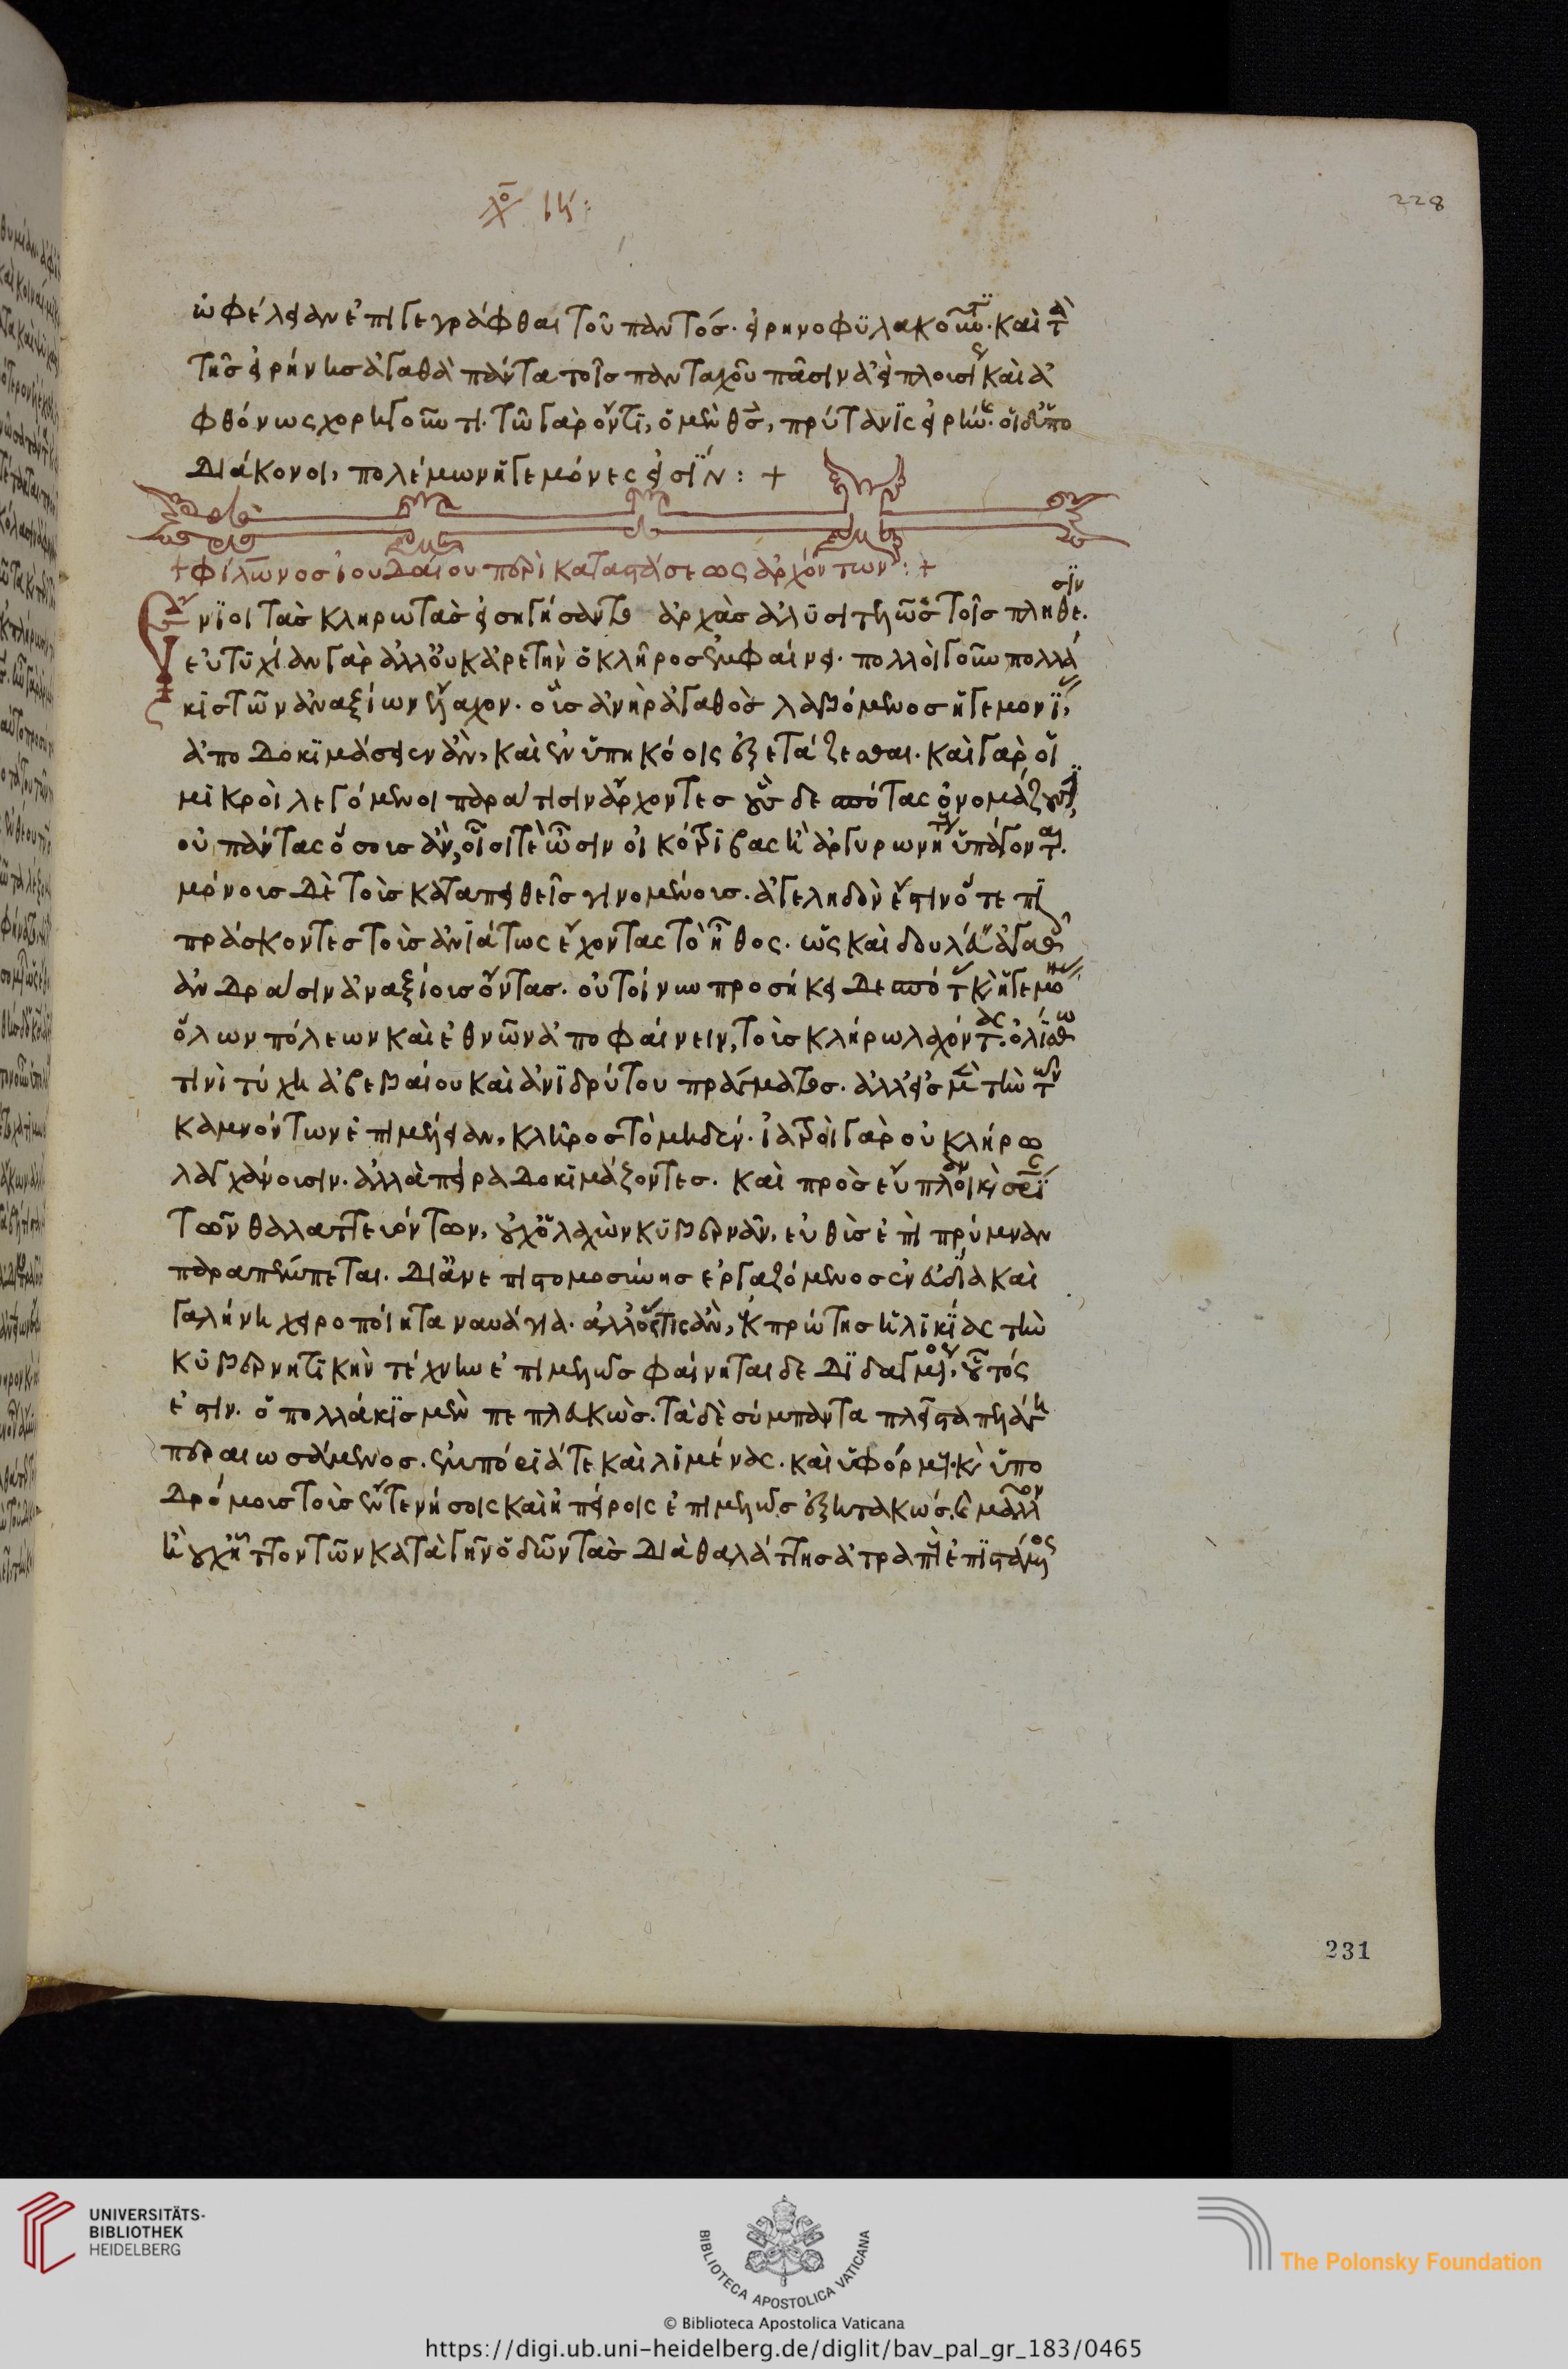 λό ιϛ:
228
ὠφέλειαν ἐπιγεγράφθαι τοῦ παντόσ. εἰρηνοφύλακος οὖν τϊ. καὶ τὰ
τῆσ εἰρήνησ ἀγαθὰ πάντα τοῖσ πανταχοῦ πᾶσιν ἀεὶ πλουσί καὶ ἀ
φθόνως χορηγοῦντι. τῶ γὰρ ὄντϊ, ὁ μὲν θσ, πρύτανϊς εἰρήνησ. οἱ δ' ὑπο
διάκονοι, πολέμων ἡγεμόνες εἰσϊν : +
+ φίλωνοσ ἰουδαίου περὶ καταστάσεως ἀρχόντων : +
Ἔνϊοι τὰσ κληρωτὰσ εἰσηγήσαντο ἀρχὰσ ἀλυσιτελῶσ τοῖσ πλήθεσϊν.
εὐτυχίαν γὰρ ἀλλ' οὐκ ἀρετὴν ὁ κλῆροσ ἐμφαίνει. πολλοὶ γοῦν πολλά
κισ τῶν ἀναξίων ἔλαχον. οὓσ ἀνὴρ ἀγαθὸσ λαβόμενοσ ἡγεμονϊ,
ἀποδοκϊμάσειεν ἂν, καὶ ἐν ὑπηκόοις ἐξετάζεσθαι. καὶ γὰρ οἱ
μϊκροὶ λεγόμενοι παρά τισιν ἄρχοντεσ οὓσ δεσπότας ὀνομάζουσϊ,
οὐ πάντας ὅσουσ ἂν, οἷοί τε ὦσιν οἰκότρϊβας ἢ ἀργυρωνήτους ὑπάγονται.
μόνουσ δὲ τοὺσ καταπειθεῖσ γινομένουσ. ἀγεληδὸν ἔστιν ὅτε πϊ
πράσκοντεσ τοὺσ ἀνϊάτως ἔχοντας τὸ ἦθος. ὡς καὶ δουλεύειν ἀγαθῶν
ἀνδράσιν ἀναξίουσ ὄντασ. οὐ τοίνυν προσήκει δεσπότας καὶ ἡγεμόνας
ὅλων πόλεων καὶ ἐθνῶν ἀποφαίνειν, τοὺσ κλήρω λαχόντας. ὀλϊσθω
τινὶ τύχη ἀβεβαίου καὶ ἀνϊδρύτου πράγματοσ. ἀλλ' εἰσ μὲν τὴν τῶν
καμνόντων ἐπιμέλειαν, κλῆροσ τὸ μηδέν. ἰατροὶ γὰρ οὐ κλήρω
λαγχάνουσιν. ἀλλὰ πείρα δοκϊμάζοντεσ. καὶ πρὸσ εὔπλοιαν καὶ σρϊ
τῶν θαλαττευόντων, οὐχ ὁ λαχὼν κϋβερνᾶν, εὐθὺσ ἐπὶ πρύμναν
παραπέμπεται. δι' ἀνεπιστημοσύνησ ἐργαζόμενοσ ἐν εὐδϊα καὶ
γαλήνη χειροποίητα ναυάγια. ἀλλ' ὅστις ἂν, ἐκ πρώτησ ἡλϊκίας τὴν
κϋβερνητϊκὴν τέχνην ἐπιμελῶσ φαίνηται δεδϊδαγμένος. οὗτός
ἐστιν. ὁ πολλάκϊσ μὲν πεπλευκὼσ. τὰ δὲ σύμπαντα πλεῖστα πελάγη
περαιωσάμενοσ. ἐμπόρϊά τε καὶ λϊμένας. καὶ ὑφόρμους. καὶ ὑπο
δρόμουσ τοὺσ ἔν τε νήσοις καὶ ἠπείροις ἐπιμελῶσ ἐξητακώσ. ἢ μᾶλλον
ἢ οὐχ ἧττον τῶν κατὰ γῆν ὁδῶν τὰσ διὰ θαλάττησ ἀτραποὺς ἐπϊστάμενος
231
UNIVERSITÄTS-
BIBLIOTHEK
HEIDELBERG
BIBLIOTECA APOSTOLICA VATICANA
The Polonsky Foundation
© Biblioteca Apostolica Vaticana
https://digi.ub.uni-heidelberg.de/diglit/bav_pal_gr_183/0465